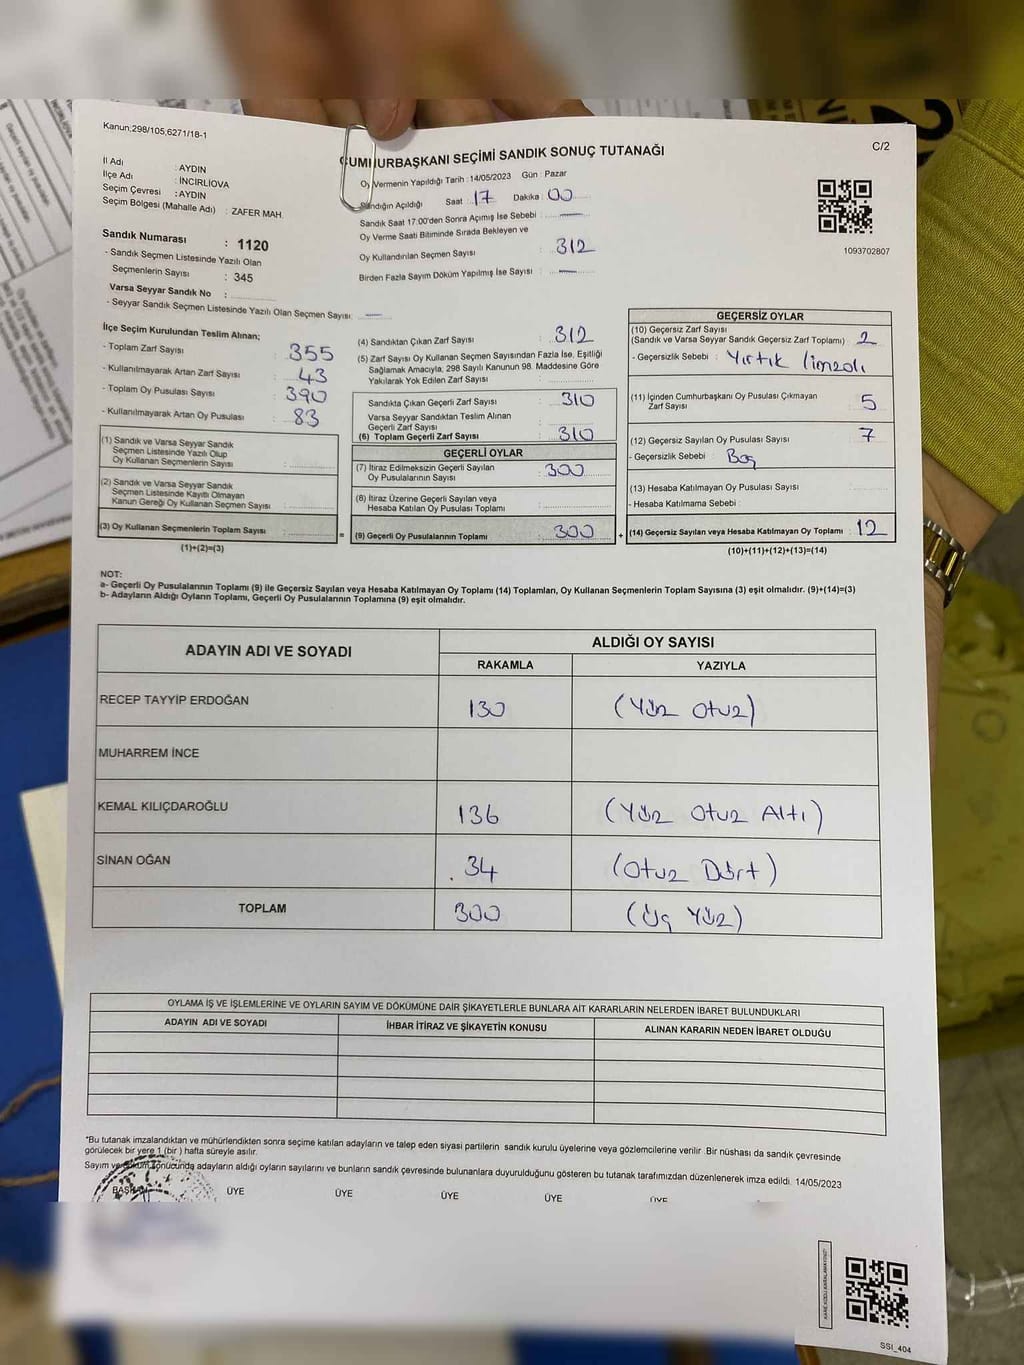 Kanun;298/105,6271/18-1
C/2
CUMHURBAŞKANI SEÇİMİ SANDIK SONUÇ TUTANAĞI
İl Adı : AYDIN
İlçe Adı : İNCİRLİOVA
Seçim Çevresi : AYDIN
Seçim Bölgesi (Mahalle Adı) : ZAFER MAH.
Oy Vermenin Yapıldığı Tarih : 14/05/2023 Gün : Pazar
Sandığın Açıldığı Saat 17 Dakika 00
Sandık Saat 17:00'den Sonra Açımış İse Sebebi : —
Oy Verme Saati Bitiminde Sırada Bekleyen ve
Oy Kullandırılan Seçmen Sayısı : 312
Birden Fazla Sayım Döküm Yapılmış İse Sayısı : —
1093702807
Sandık Numarası : 1120
- Sandık Seçmen Listesinde Yazılı Olan
Seçmenlerin Sayısı : 345
Varsa Seyyar Sandık No :
- Seyyar Sandık Seçmen Listesinde Yazılı Olan Seçmen Sayısı: —
İlçe Seçim Kurulundan Teslim Alınan;
- Toplam Zarf Sayısı : 355
- Kullanılmayarak Artan Zarf Sayısı : 43
- Toplam Oy Pusulası Sayısı : 390
- Kullanılmayarak Artan Oy Pusulası : 83
(1) Sandık ve Varsa Seyyar Sandık
Seçmen Listesinde Yazılı Olup
Oy Kullanan Seçmenlerin Sayısı :
(2) Sandık ve Varsa Seyyar Sandık
Seçmen Listesinde Kayıtlı Olmayan
Kanun Gereği Oy Kullanan Seçmen Sayısı :
(3) Oy Kullanan Seçmenlerin Toplam Sayısı :
(1)+(2)=(3)
(4) Sandıktan Çıkan Zarf Sayısı : 312
(5) Zarf Sayısı Oy Kullanan Seçmen Sayısından Fazla İse, Eşitliği
Sağlamak Amacıyla; 298 Sayılı Kanunun 98. Maddesine Göre
Yakılarak Yok Edilen Zarf Sayısı :
Sandıkta Çıkan Geçerli Zarf Sayısı : 310
Varsa Seyyar Sandıktan Teslim Alınan
Geçerli Zarf Sayısı :
(6) Toplam Geçerli Zarf Sayısı : 310
GEÇERLİ OYLAR
(7) İtiraz Edilmeksizin Geçerli Sayılan
Oy Pusulalarının Sayısı : 300
(8) İtiraz Üzerine Geçerli Sayılan veya
Hesaba Katılan Oy Pusulası Toplamı :
= (9) Geçerli Oy Pusulalarının Toplamı : 300 +
GEÇERSİZ OYLAR
(10) Geçersiz Zarf Sayısı
(Sandık ve Varsa Seyyar Sandık Geçersiz Zarf Toplamı) : 2
- Geçersizlik Sebebi : Yırtık
(11) İçinden Cumhurbaşkanı Oy Pusulası Çıkmayan
Zarf Sayısı : 5
(12) Geçersiz Sayılan Oy Pusulası Sayısı : 7
- Geçersizlik Sebebi : Boş
(13) Hesaba Katılmayan Oy Pusulası Sayısı :
- Hesaba Katılmama Sebebi :
(14) Geçersiz Sayılan veya Hesaba Katılmayan Oy Toplamı : 12
(10)+(11)+(12)+(13)=(14)
NOT:
a- Geçerli Oy Pusulalarının Toplamı (9) ile Geçersiz Sayılan veya Hesaba Katılmayan Oy Toplamı (14) Toplamları, Oy Kullanan Seçmenlerin Toplam Sayısına (3) eşit olmalıdır. (9)+(14)=(3)
b- Adayların Aldığı Oyların Toplamı, Geçerli Oy Pusulalarının Toplamına (9) eşit olmalıdır.
ADAYIN ADI VE SOYADI ALDIĞI OY SAYISI
RAKAMLA YAZIYLA
RECEP TAYYİP ERDOĞAN 130 (Yüz Otuz)
MUHARREM İNCE
KEMAL KILIÇDAROĞLU 136 (Yüz Otuz Altı)
SİNAN OĞAN 34 (Otuz Dört)
TOPLAM 300 (Üç Yüz)
OYLAMA İŞ VE İŞLEMLERİNE VE OYLARIN SAYIM VE DÖKÜMÜNE DAİR ŞİKAYETLERLE BUNLARA AİT KARARLARIN NELERDEN İBARET BULUNDUKLARI
ADAYIN ADI VE SOYADI İHBAR İTİRAZ VE ŞİKAYETİN KONUSU ALINAN KARARIN NEDEN İBARET OLDUĞU
*Bu tutanak imzalandıktan ve mühürlendikten sonra seçime katılan adayların ve talep eden siyasi partilerin sandık kurulu üyelerine veya gözlemcilerine verilir. Bir nüshası da sandık çevresinde
görülecek bir yere 1 (bir) hafta süreyle asılır.
Sayım ve döküm sonucunda adayların aldığı oyların sayılarını ve bunların sandık çevresinde bulunanlara duyurulduğunu gösteren bu tutanak tarafımızdan düzenlenerek imza edildi. 14/05/2023
BAŞKAN ÜYE ÜYE ÜYE ÜYE ÜYE
SSI_404